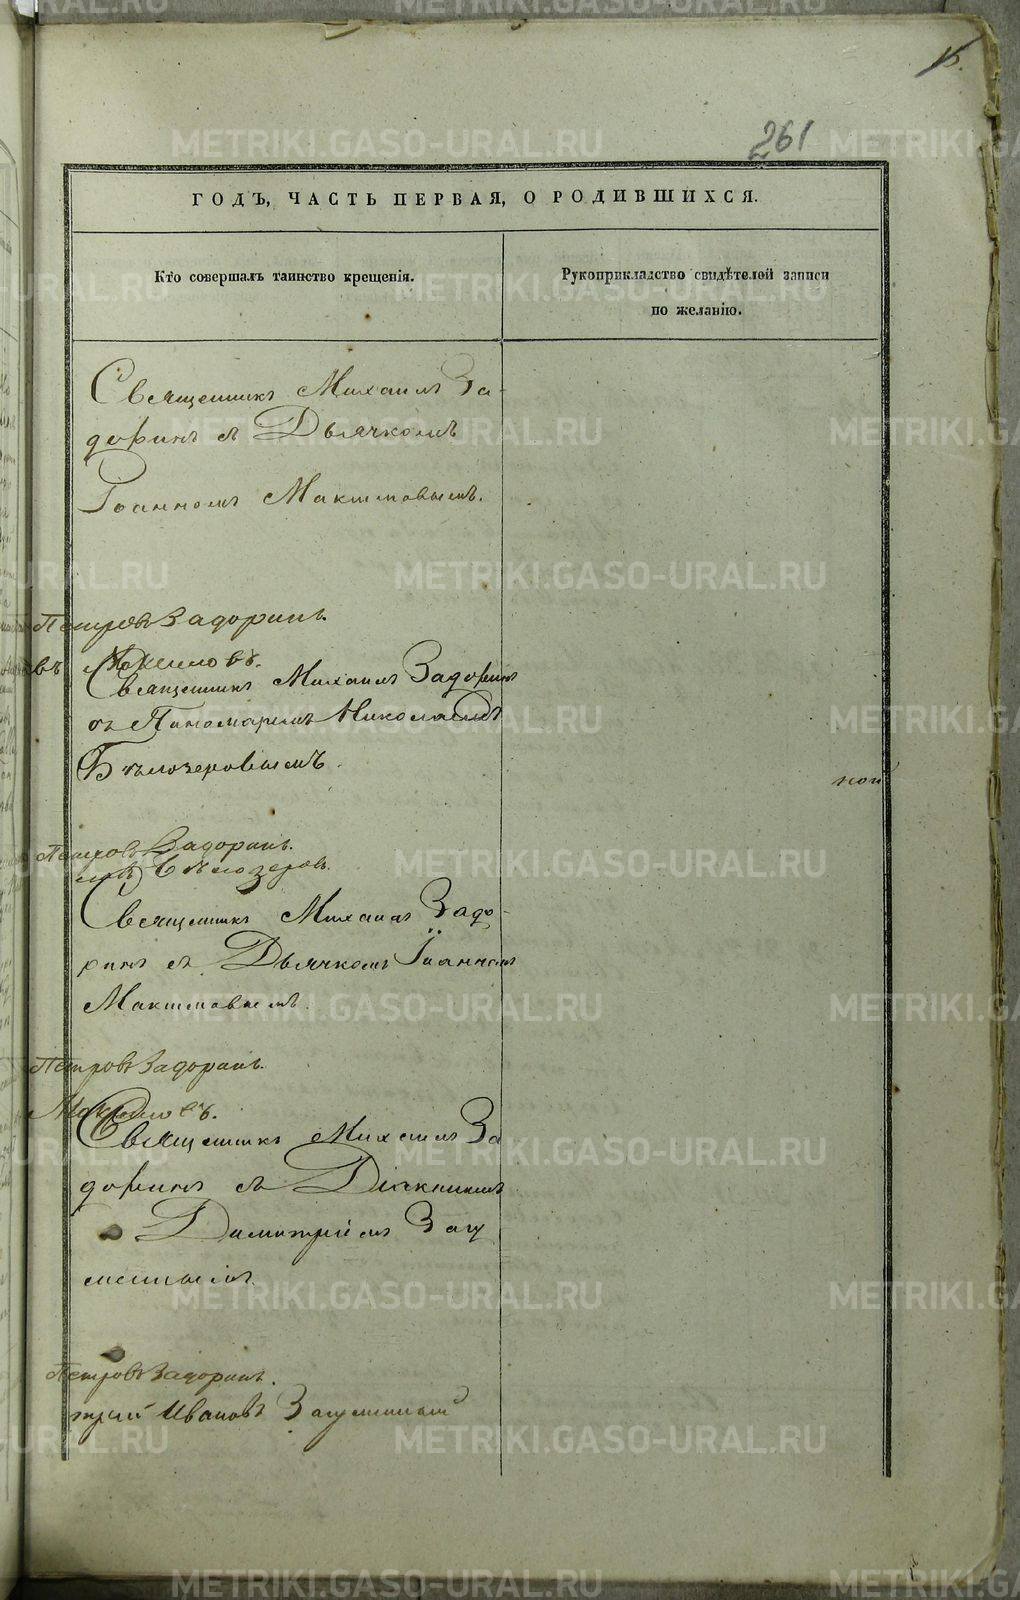 15.
261
ГОДЪ, ЧАСТЬ ПЕРВАЯ, О РОДИВШИХСЯ.
Кто совершалъ таинство крещенія.
Рукоприкладство свидѣтелей записи
по желанію.
Священникъ Михаилъ За-
доринъ съ Дьячкомъ
Іоанномъ Максимовымъ.
Петровъ Задоринъ.
въ Максимовъ.
Священникъ Михаилъ Задоринъ
съ Пономаремъ Николаемъ
Бѣлозеровымъ.
Петровъ Задоринъ.
Бѣлозеровъ.
Священникъ Михаилъ Задо-
ринъ съ Дьячкомъ Іоанномъ
Максимовымъ.
Петровъ Задоринъ.
Максимовъ.
Священникъ Михаилъ За
доринъ съ Діакономъ
Димитріемъ Загу
меннымъ.
Петровъ Задоринъ.
трій Ивановъ Загуменный
METRIKI.GASO-URAL.RU